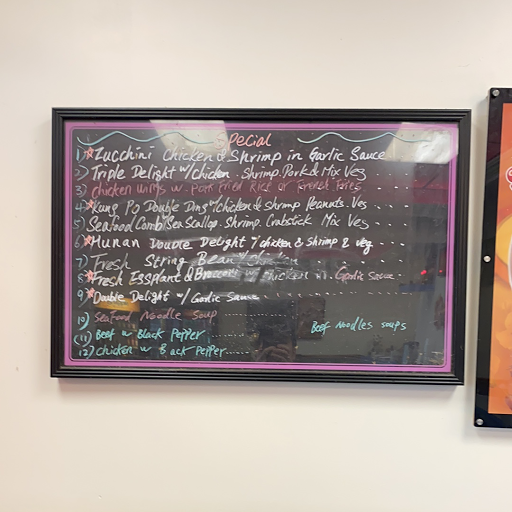 Special
1) *Zucchini Chicken & Shrimp in Garlic Sauce
2) Triple Delight w/ Chicken. Shrimp. Pork & Mix Veg ...
3) Chicken Wings w. Pork Fried Rice or French Fries
4) *Kung Po Double Ding w/ Chicken & Shrimp Peanuts. Ves ...
5) Seafood Comb/Sea Scallop. Shrimp. Crabstick Mix Veg ...
6) *Hunan Double Delight / chicken & shrimp & veg ...
7) Fresh String Bean w/ Chicken
8) *Fresh Eggplant & Broccoli w/ Chicken in Garlic Sauce ...
9) *Double Delight w/ Garlic Sauce ......
10) Seafood Noodle Soup ......
11) Beef w Black Pepper ........ Beef Noodles soups
12) Chicken w Back Pepper ........